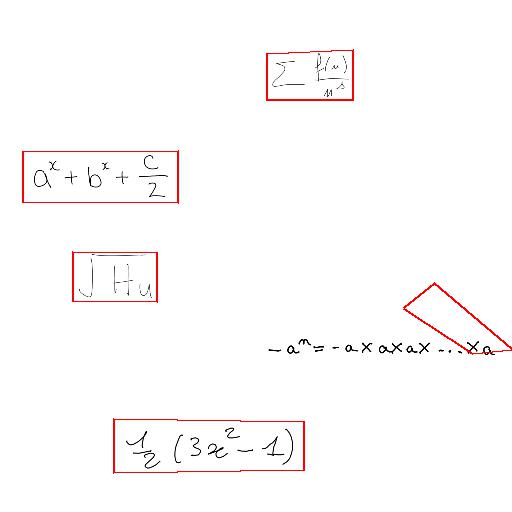 ∑ f(n)/n^s
a^x + b^x + c/2
√Hu
-a^n = -a×a×a×...×a
1/2 (3x^2 - 1)